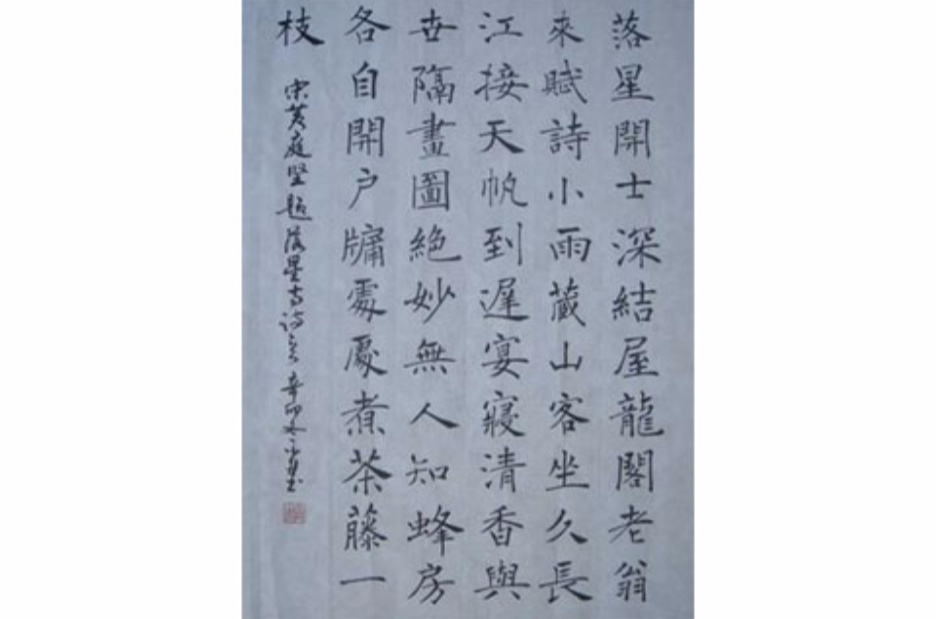 落星開士深結屋龍閣老翁
來賦詩小雨藏山客坐久長
江接天帆到遲宴寢清香與
世隔畫圖絕妙無人知蜂房
各自開戶牖處處煮茶藤一
枝
宋黃庭堅題落星寺詩 辛卯